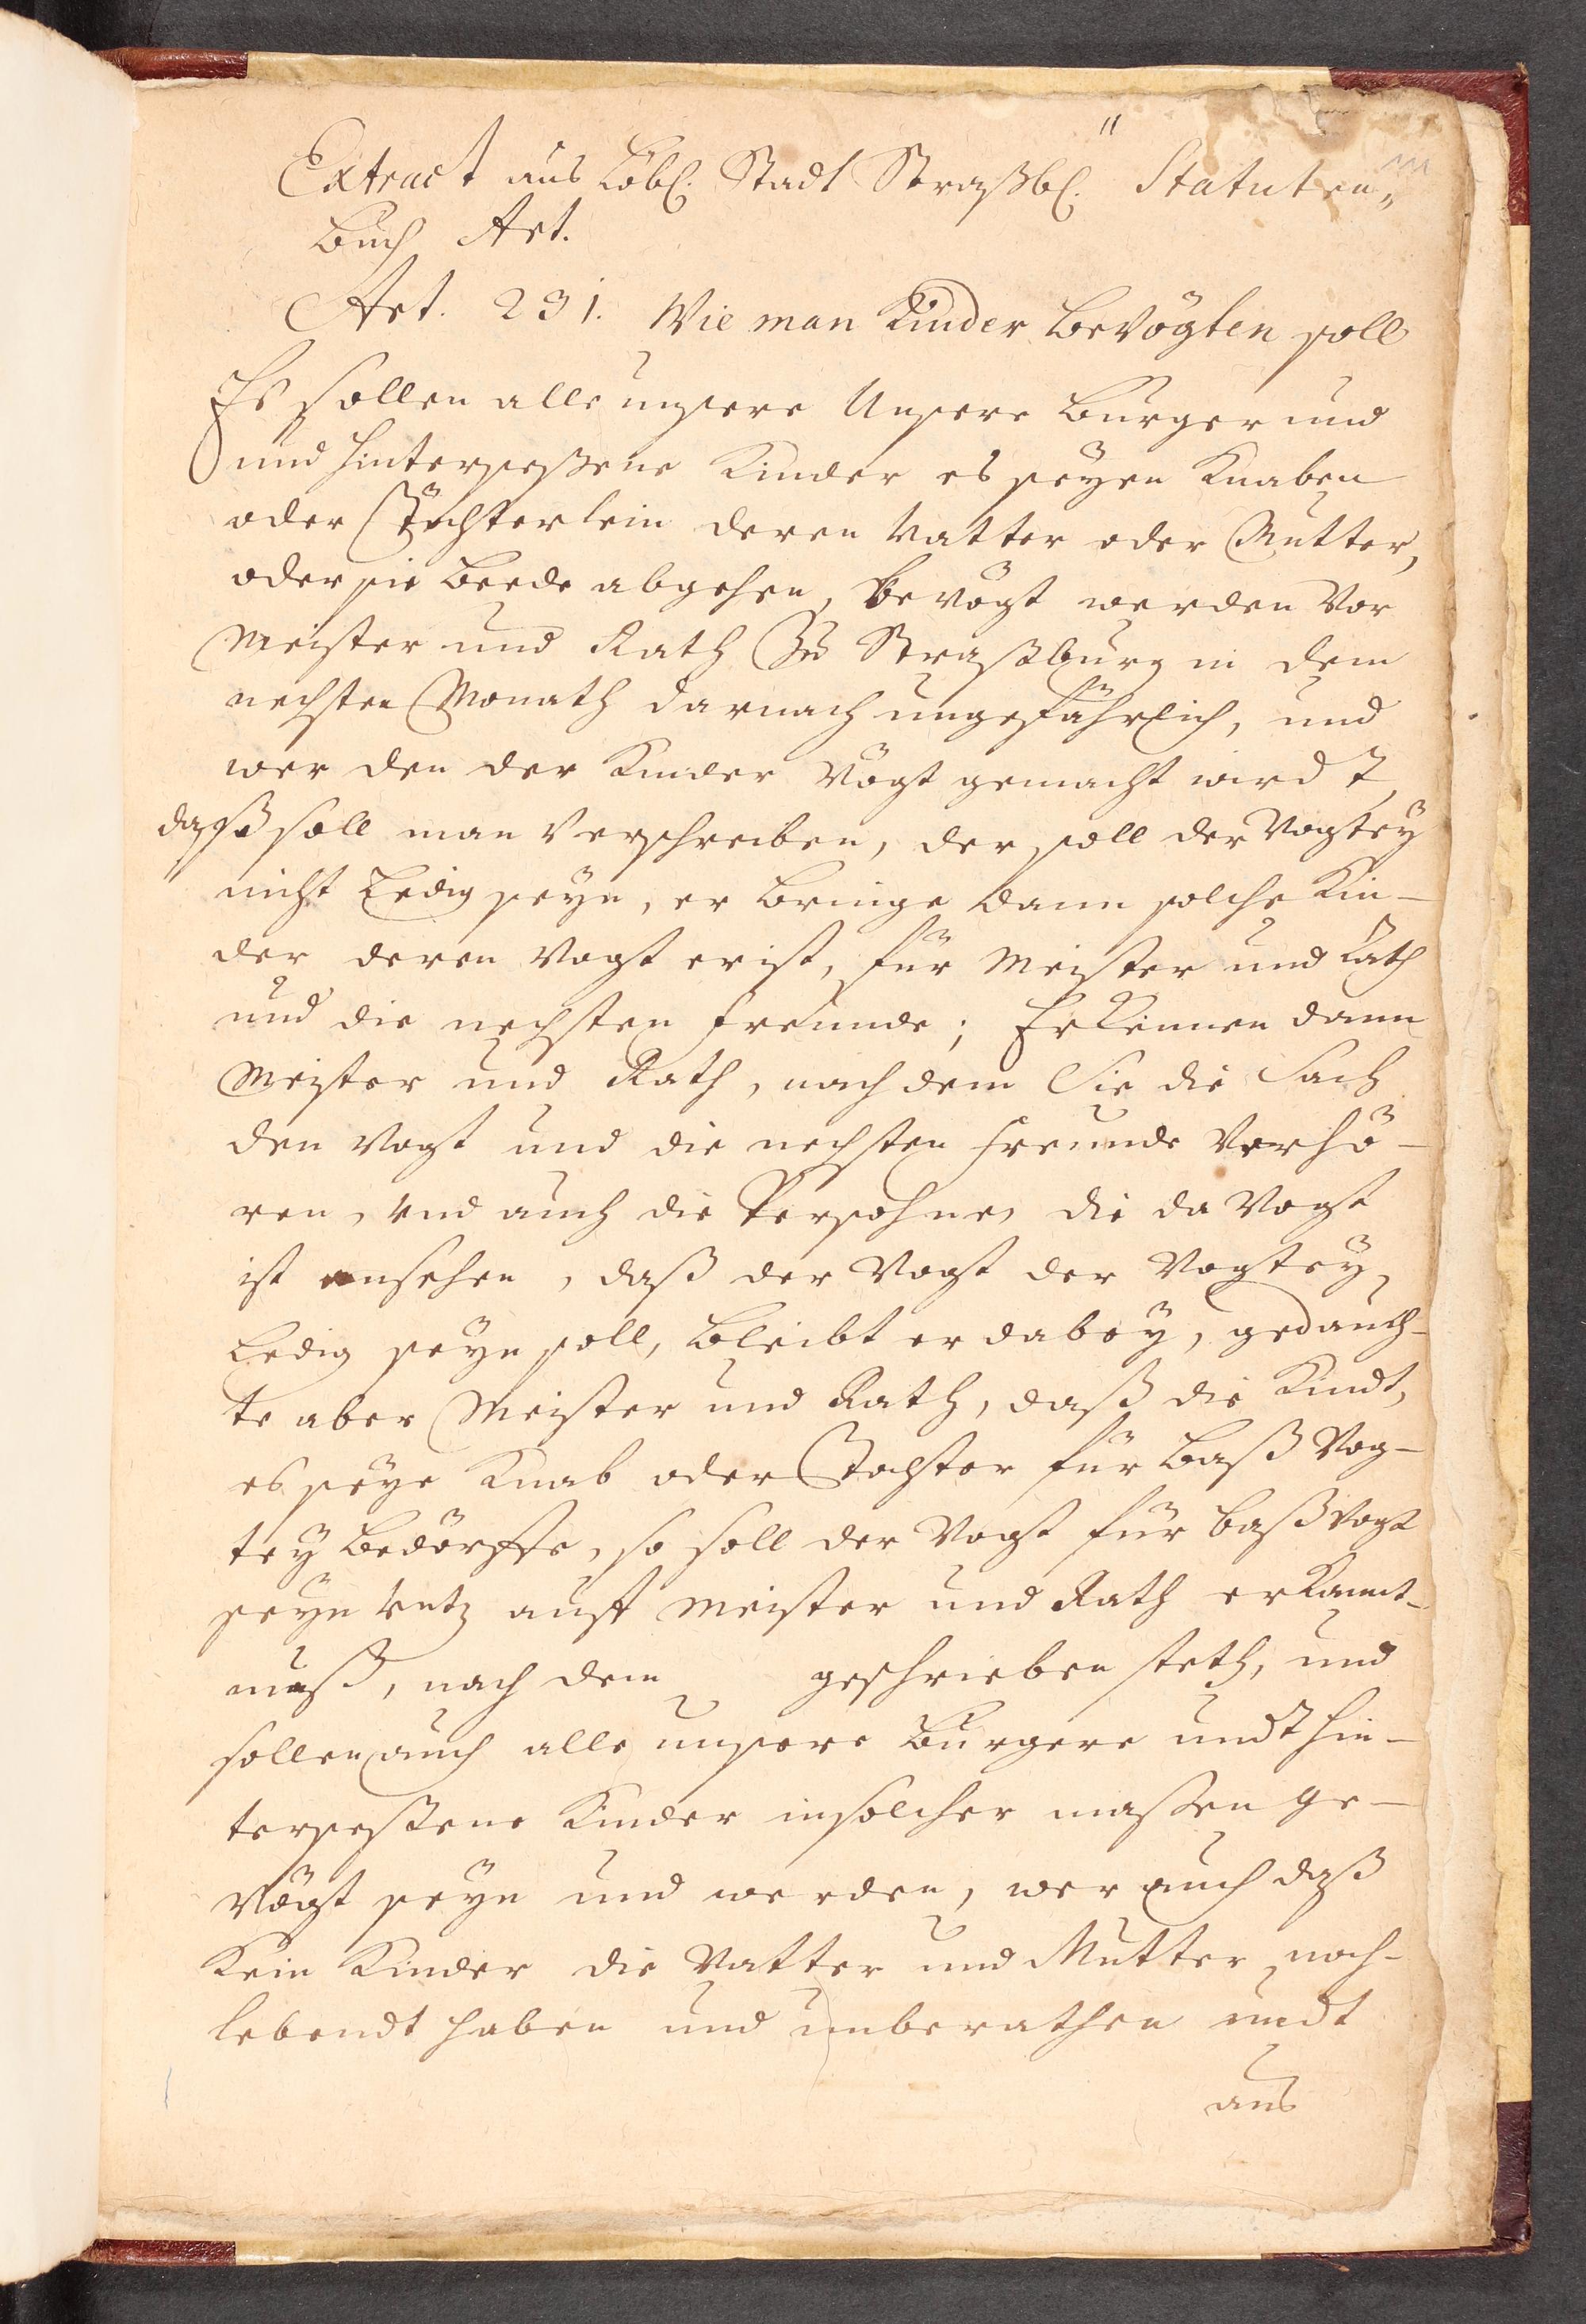 Extract aus Löbl. Stadt Straßbl. Statuten„
Buch Art.
Art. 231. Wie man Kinder bevögten soll
Es sollen alle unsere Unsere Burger und
und hintersessene Kinder es seyen Knaben
oder Töchterlein deren Vatter oder Mutter,
oder sie beede abgehen, bevögt werden vor
Meister und Rath Zu Straßburg in dem
nechsten Monath darnach ungefährlich, und
wer den der Kinder Vögt gemacht wirdt
daß soll man verschreiben, der soll der Vogtey
nicht Ledig seyn, er bringe dann solche Kin-
der deren Vogt er ist, für Meister und Rath
und die nechsten freunde; Erkennen dann
Meister und Rath, nach dem Sie die Sach
den Vogt und die nechsten freunde Verhö-
ren, und auch die Persohne, die da Vogt
ist ansehen, daß der Vogt der Vogtey
Ledig seyn soll, bleibt er dabey, gedauch-
te aber Meister und Rath, daß die Kindt,
es seye Knab oder Tochter für baß Vog-
tey bedörffe, so soll der Vogt für baß Vogt
seyn untz auff Meister und Rath erkannt-
nuß, nach dem geschrieben steth, und
sollen auch alle unsere Burgere undt hin-
tersessene Kinder in solcher massen ge-
vögt seyn und werden, wer auch daß
Kein Kinder die Vatter und Mutter noch-
lebendt haben und unberathen undt
aus